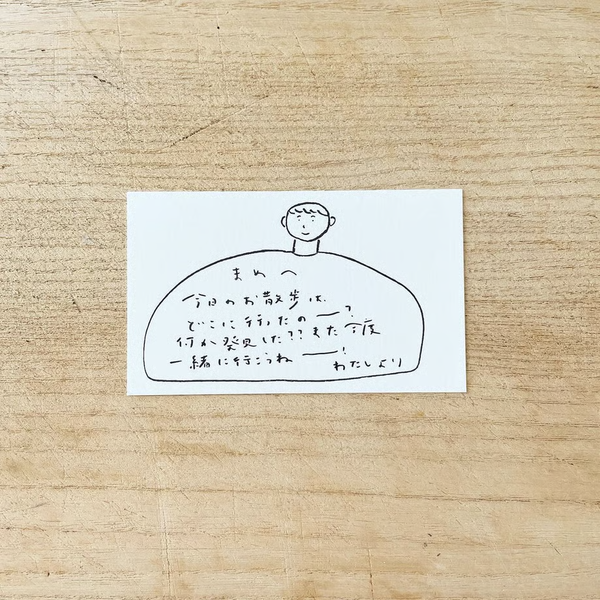 まめへ
今日のお散歩は、
どこに行ったの──?
何か発見した??また今度
一緒に行こうね──!
わたしより